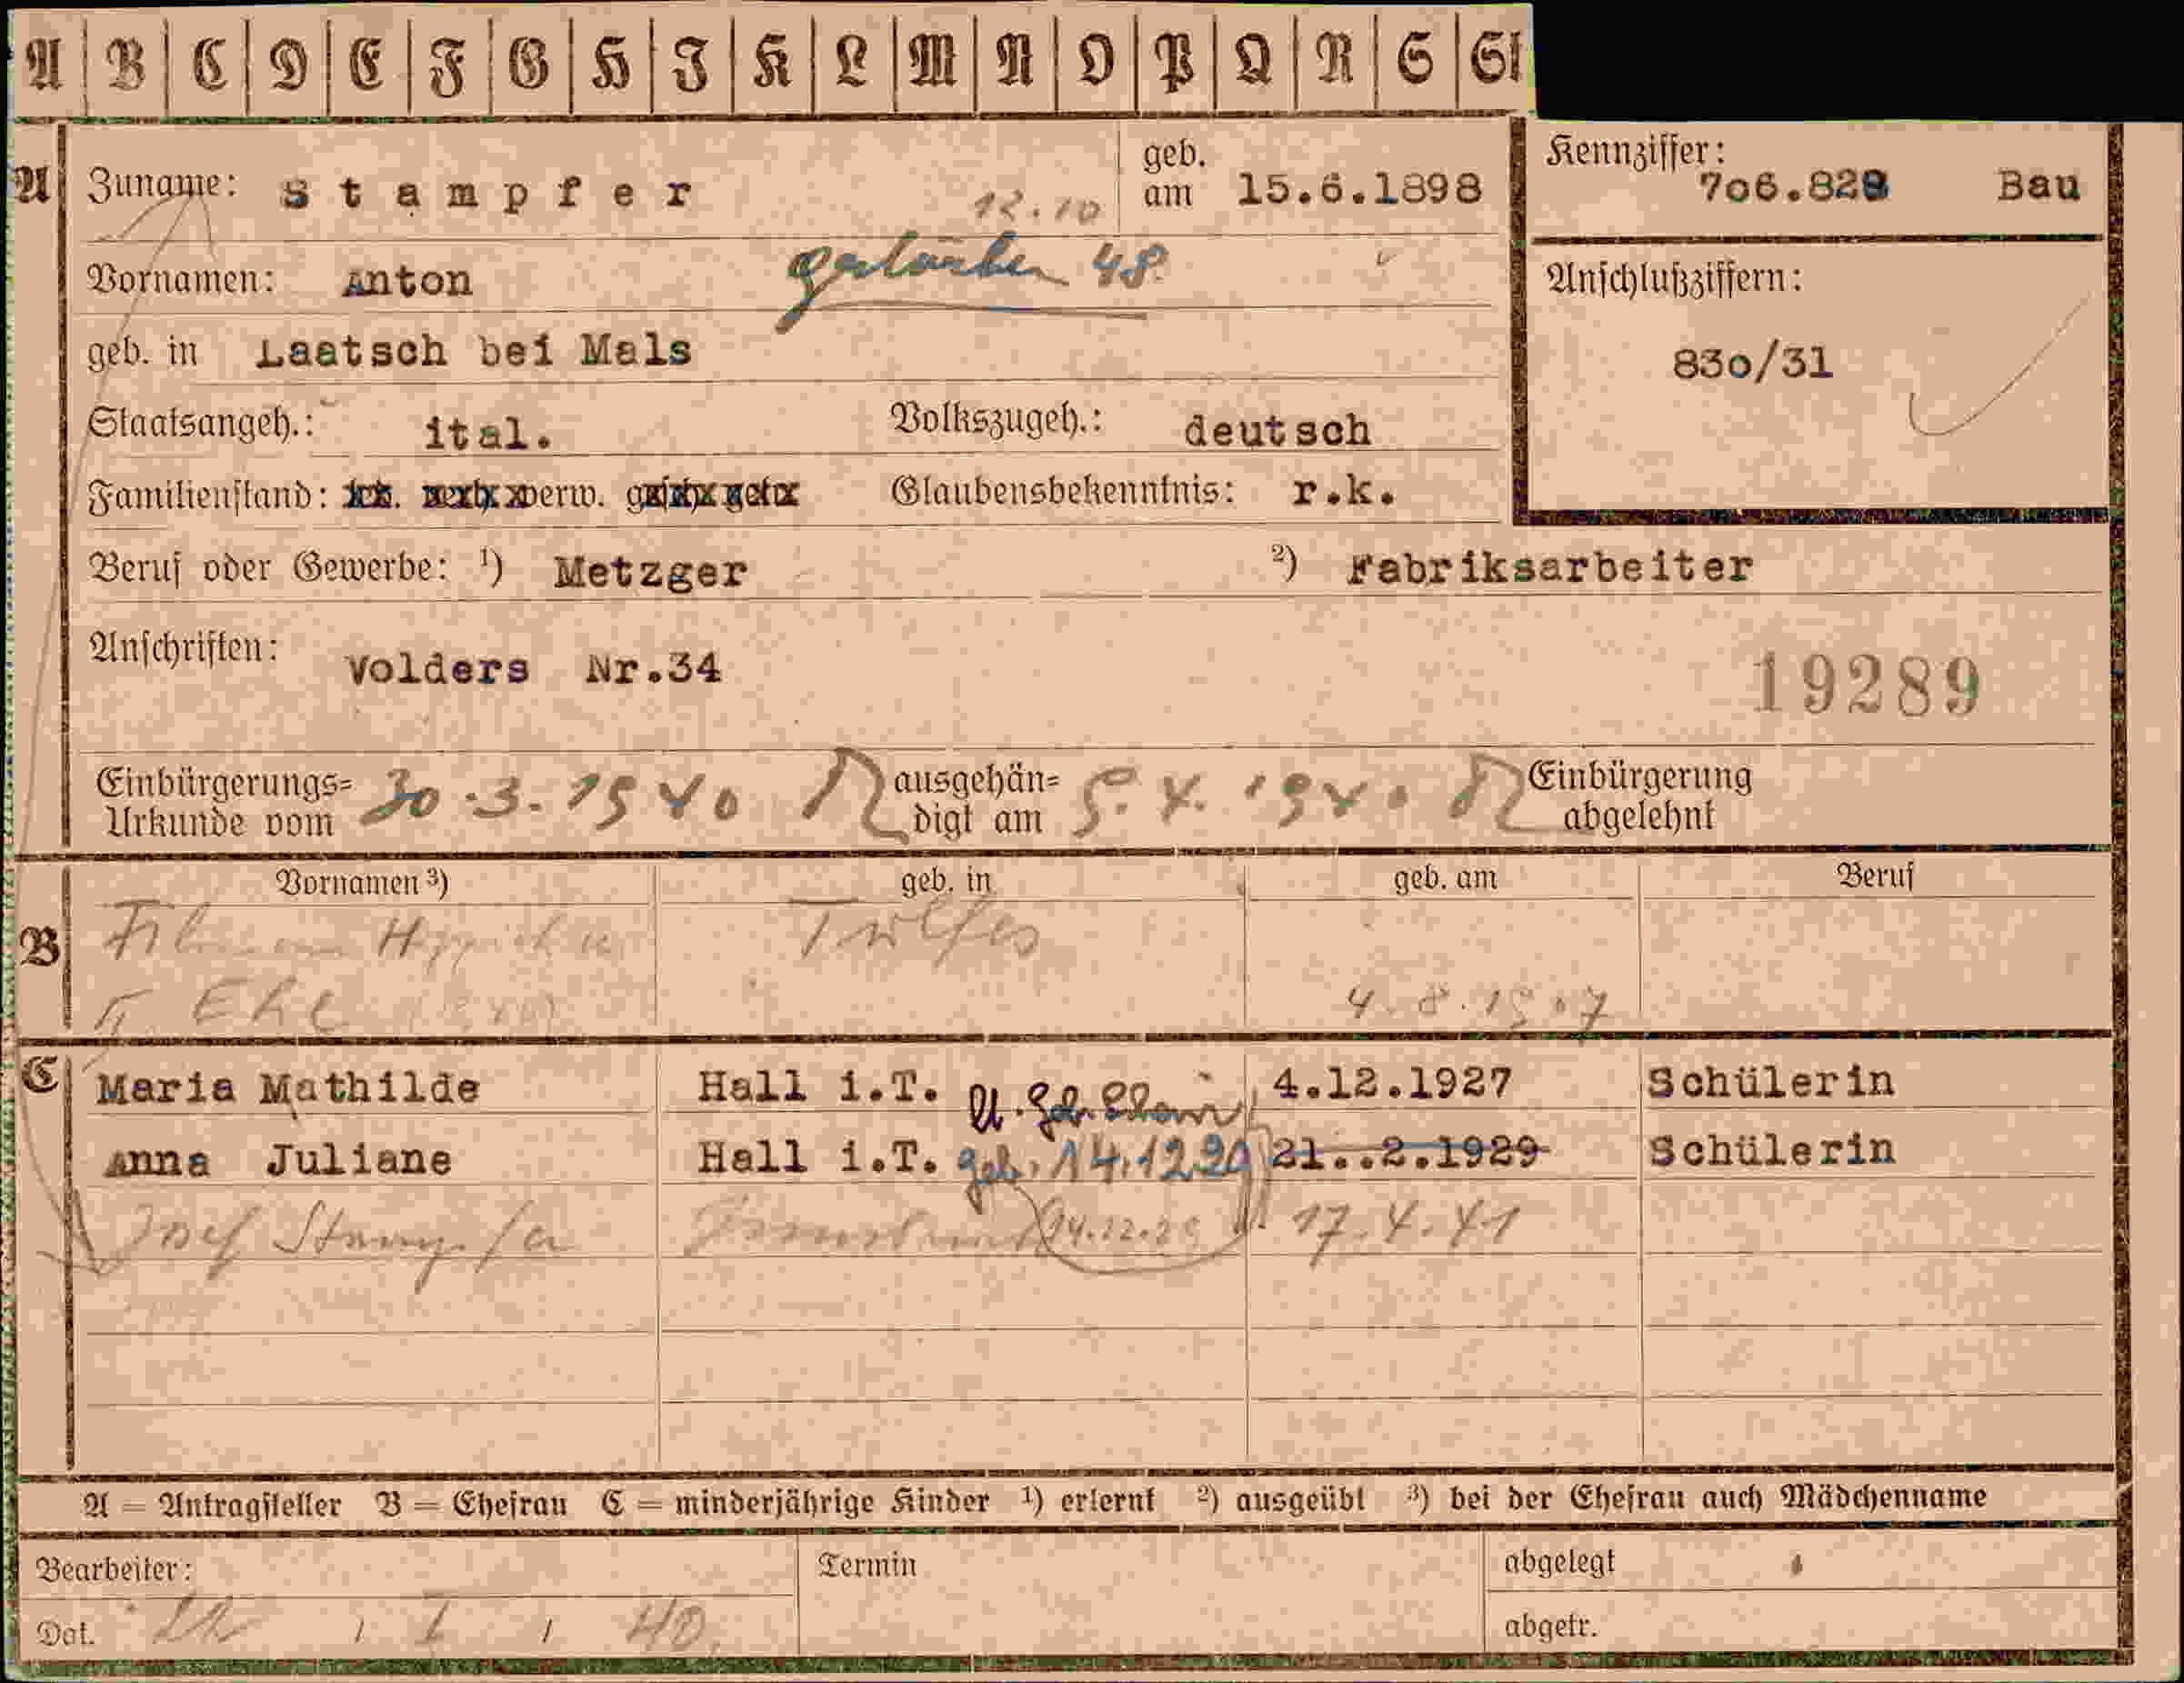 A B C D E F G H I K L M N O P Q R S St
A Zuname: Stampfer 12.10 geb. am 15.6.1898
Kennziffer: 706.828 Bau
Vornamen: Anton gestorben 48.
Anschlußziffern:
830/31
geb. in Laatsch bei Mals
Staatsangeh.: ital. Volkszugeh.: deutsch
Familienstand: verw. Glaubensbekenntnis: r.k.
Beruf oder Gewerbe: 1) Metzger 2) Fabriksarbeiter
Anschriften: Volders Nr.34
19289
Einbürgerungs= Urkunde vom 30.3.1940 ausgehän= digt am 5.4.1940 Einbürgerung abgelehnt
Vornamen 3) geb. in geb. am Beruf
B Tulfes
II. Ehe 4.8.1907
C Maria Mathilde Hall i.T. 4.12.1927 Schülerin
Anna Juliane Hall i.T. geb. 14.12.29 21..2.1929 Schülerin
Josef Stampfer 14.12.29 17.4.41
A = Antragsteller B = Ehefrau C = minderjährige Kinder 1) erlernt 2) ausgeübt 3) bei der Ehefrau auch Mädchenname
Bearbeiter: Termin abgelegt
Dat. / I / 40. abgetr.